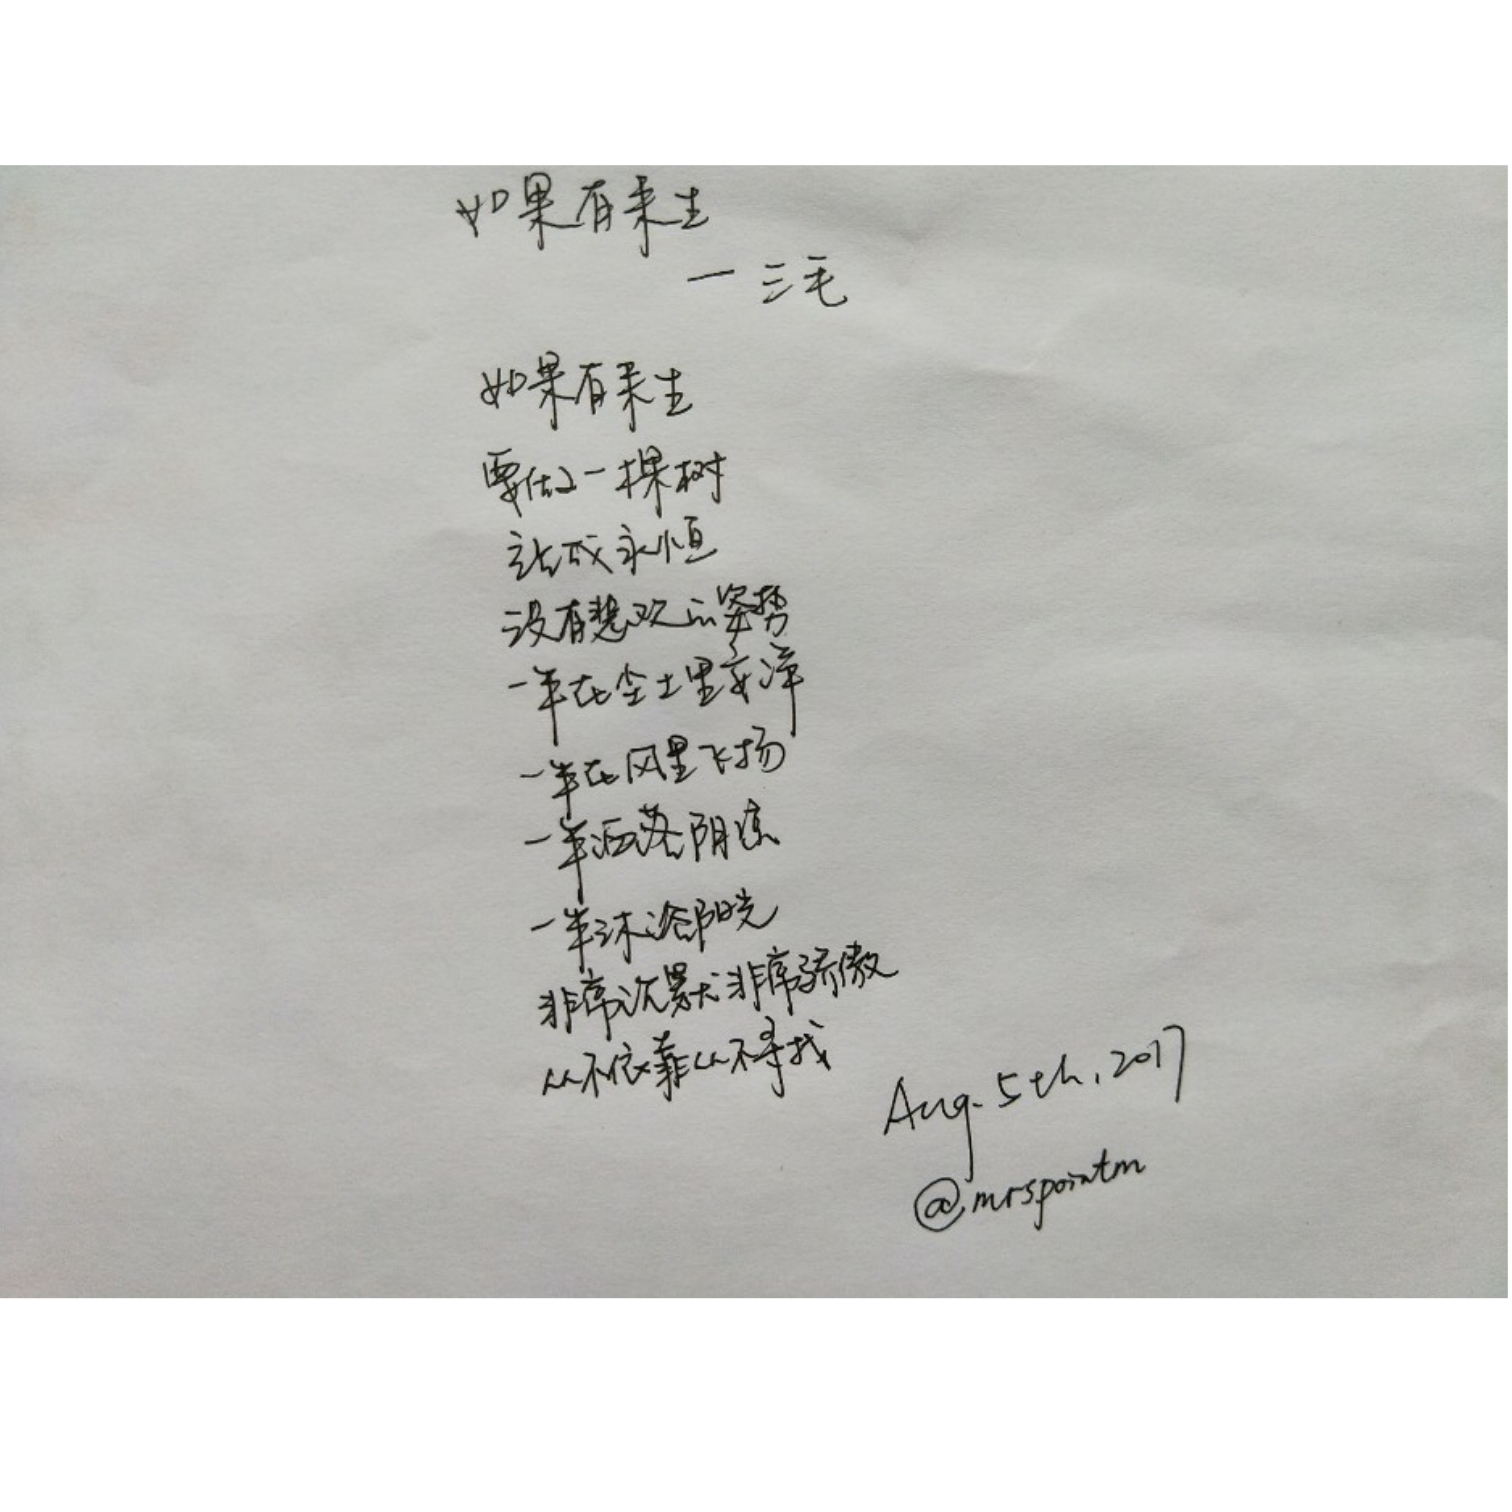 如果有来生
— 三毛
如果有来生
要做一棵树
站成永恒
没有悲欢的姿势
一半在尘土里安详
一半在风里飞扬
一半洒落阴凉
一半沐浴阳光
非常沉默非常骄傲
从不依靠从不寻找
Aug. 5th, 2017
@mrspointm